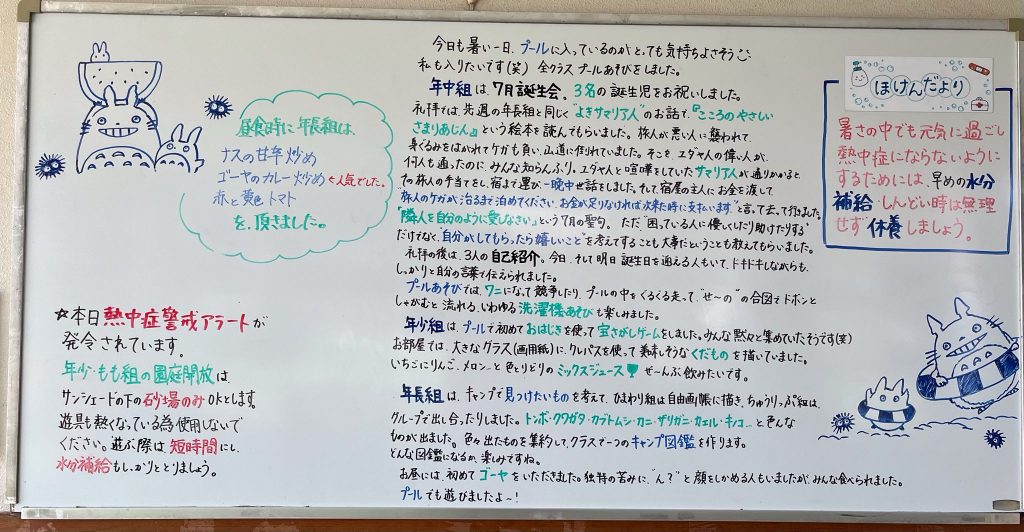 昼食時に年長組は、
ナスの甘辛炒め
ゴーヤのカレー炒め←人気でした。
赤と黄色トマト
を頂きました。
☆本日熱中症警戒アラートが
発令されています。
年少・もも組の園庭開放は、
サンシェードの下の砂場のみOKとします。
遊具も熱くなっている為使用しないで
ください。遊ぶ際は、短時間にし、
水分補給もしっかりととりましょう。
今日も暑い一日、プールに入っているのがとっても気持ちよさそう
私も入りたいです(笑) 全クラスプールあそびをしました。
年中組は、7月誕生会。3名の誕生児をお祝いしました。
礼拝では、先週の年長組と同じ"よきサマリア人"のお話で、『こころのやさしい
さまりあじん』という絵本を読んでもらいました。旅人が悪い人に襲われて、
身ぐるみをはがれてケガも負い、山道に倒れていました。そこを、ユダヤ人の偉い人が、
何人も通ったのに、みんな知らんぷり。ユダヤ人と喧嘩をしていたサマリア人が通りかかると、
その旅人の手当てをし、宿まで運び、一晩中世話をしました。そして、宿屋の主人にお金を渡して
"旅人のケガが治るまで泊めてください。お金が足りなければ次来た時に支払います"と言って去って行きました。
「隣人を自分のように愛しなさい」という7月の聖句。ただ"困っている人に優しくしたり助けたりする"
だけでなく、"自分がしてもらったら嬉しいこと"を考えてすることも大事だということも教えてもらいました。
礼拝の後は、3人の自己紹介。今日、そして明日誕生日を迎える人もいて、ドキドキしながらも、
しっかりと自分の言葉で伝えられました。
プールあそびでは、ワニになって競争したり、プールの中をぐるぐる走って、"せ〜の"の合図でドボンと
しゃがむと流れる、いわゆる洗濯機あそびも楽しみました。
年少組は、プールで初めておはじきを使って宝さがしゲームをしました。みんな黙々と集めていたそうです(笑)
お部屋では、大きなグラス(画用紙)に、クレパスを使って美味しそうなくだものを描いていました。
いちごにりんご、メロン…と色とりどりのミックスジュース ぜ〜んぶ飲みたいです。
年長組は、キャンプで見つけたいものを考えて、ひまわり組は自由画帳に描き、ちゅうりっぷ組は、
グループで出し合ったりしました。トンボ・クワガタ・カブトムシ・カニ・ザリガニ・カエル・キノコ…と色んな
ものが出ました。色々出たものを集約して、クラスで一つのキャンプ図鑑を作ります。
どんな図鑑になるか、楽しみですね。
お昼には、初めてゴーヤをいただきました。独特の苦みに、"ん？"と顔をしかめる人もいましたが、みんな食べられました。
プールでも遊びましたよ〜！
ほけんだより
暑さの中でも元気に過ごし
熱中症にならないように
するためには、早めの水分
補給・しんどい時は無理
せず休養しましょう。